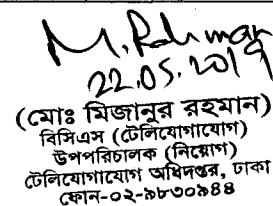 M. Rahman
22.05.2019
(মোঃ মিজানুর রহমান)
বিসিএস (টেলিযোগাযোগ)
উপপরিচালক (নিয়োগ)
টেলিযোগাযোগ অধিদপ্তর, ঢাকা
ফোন-০২-৯৮৩০৯৪৪